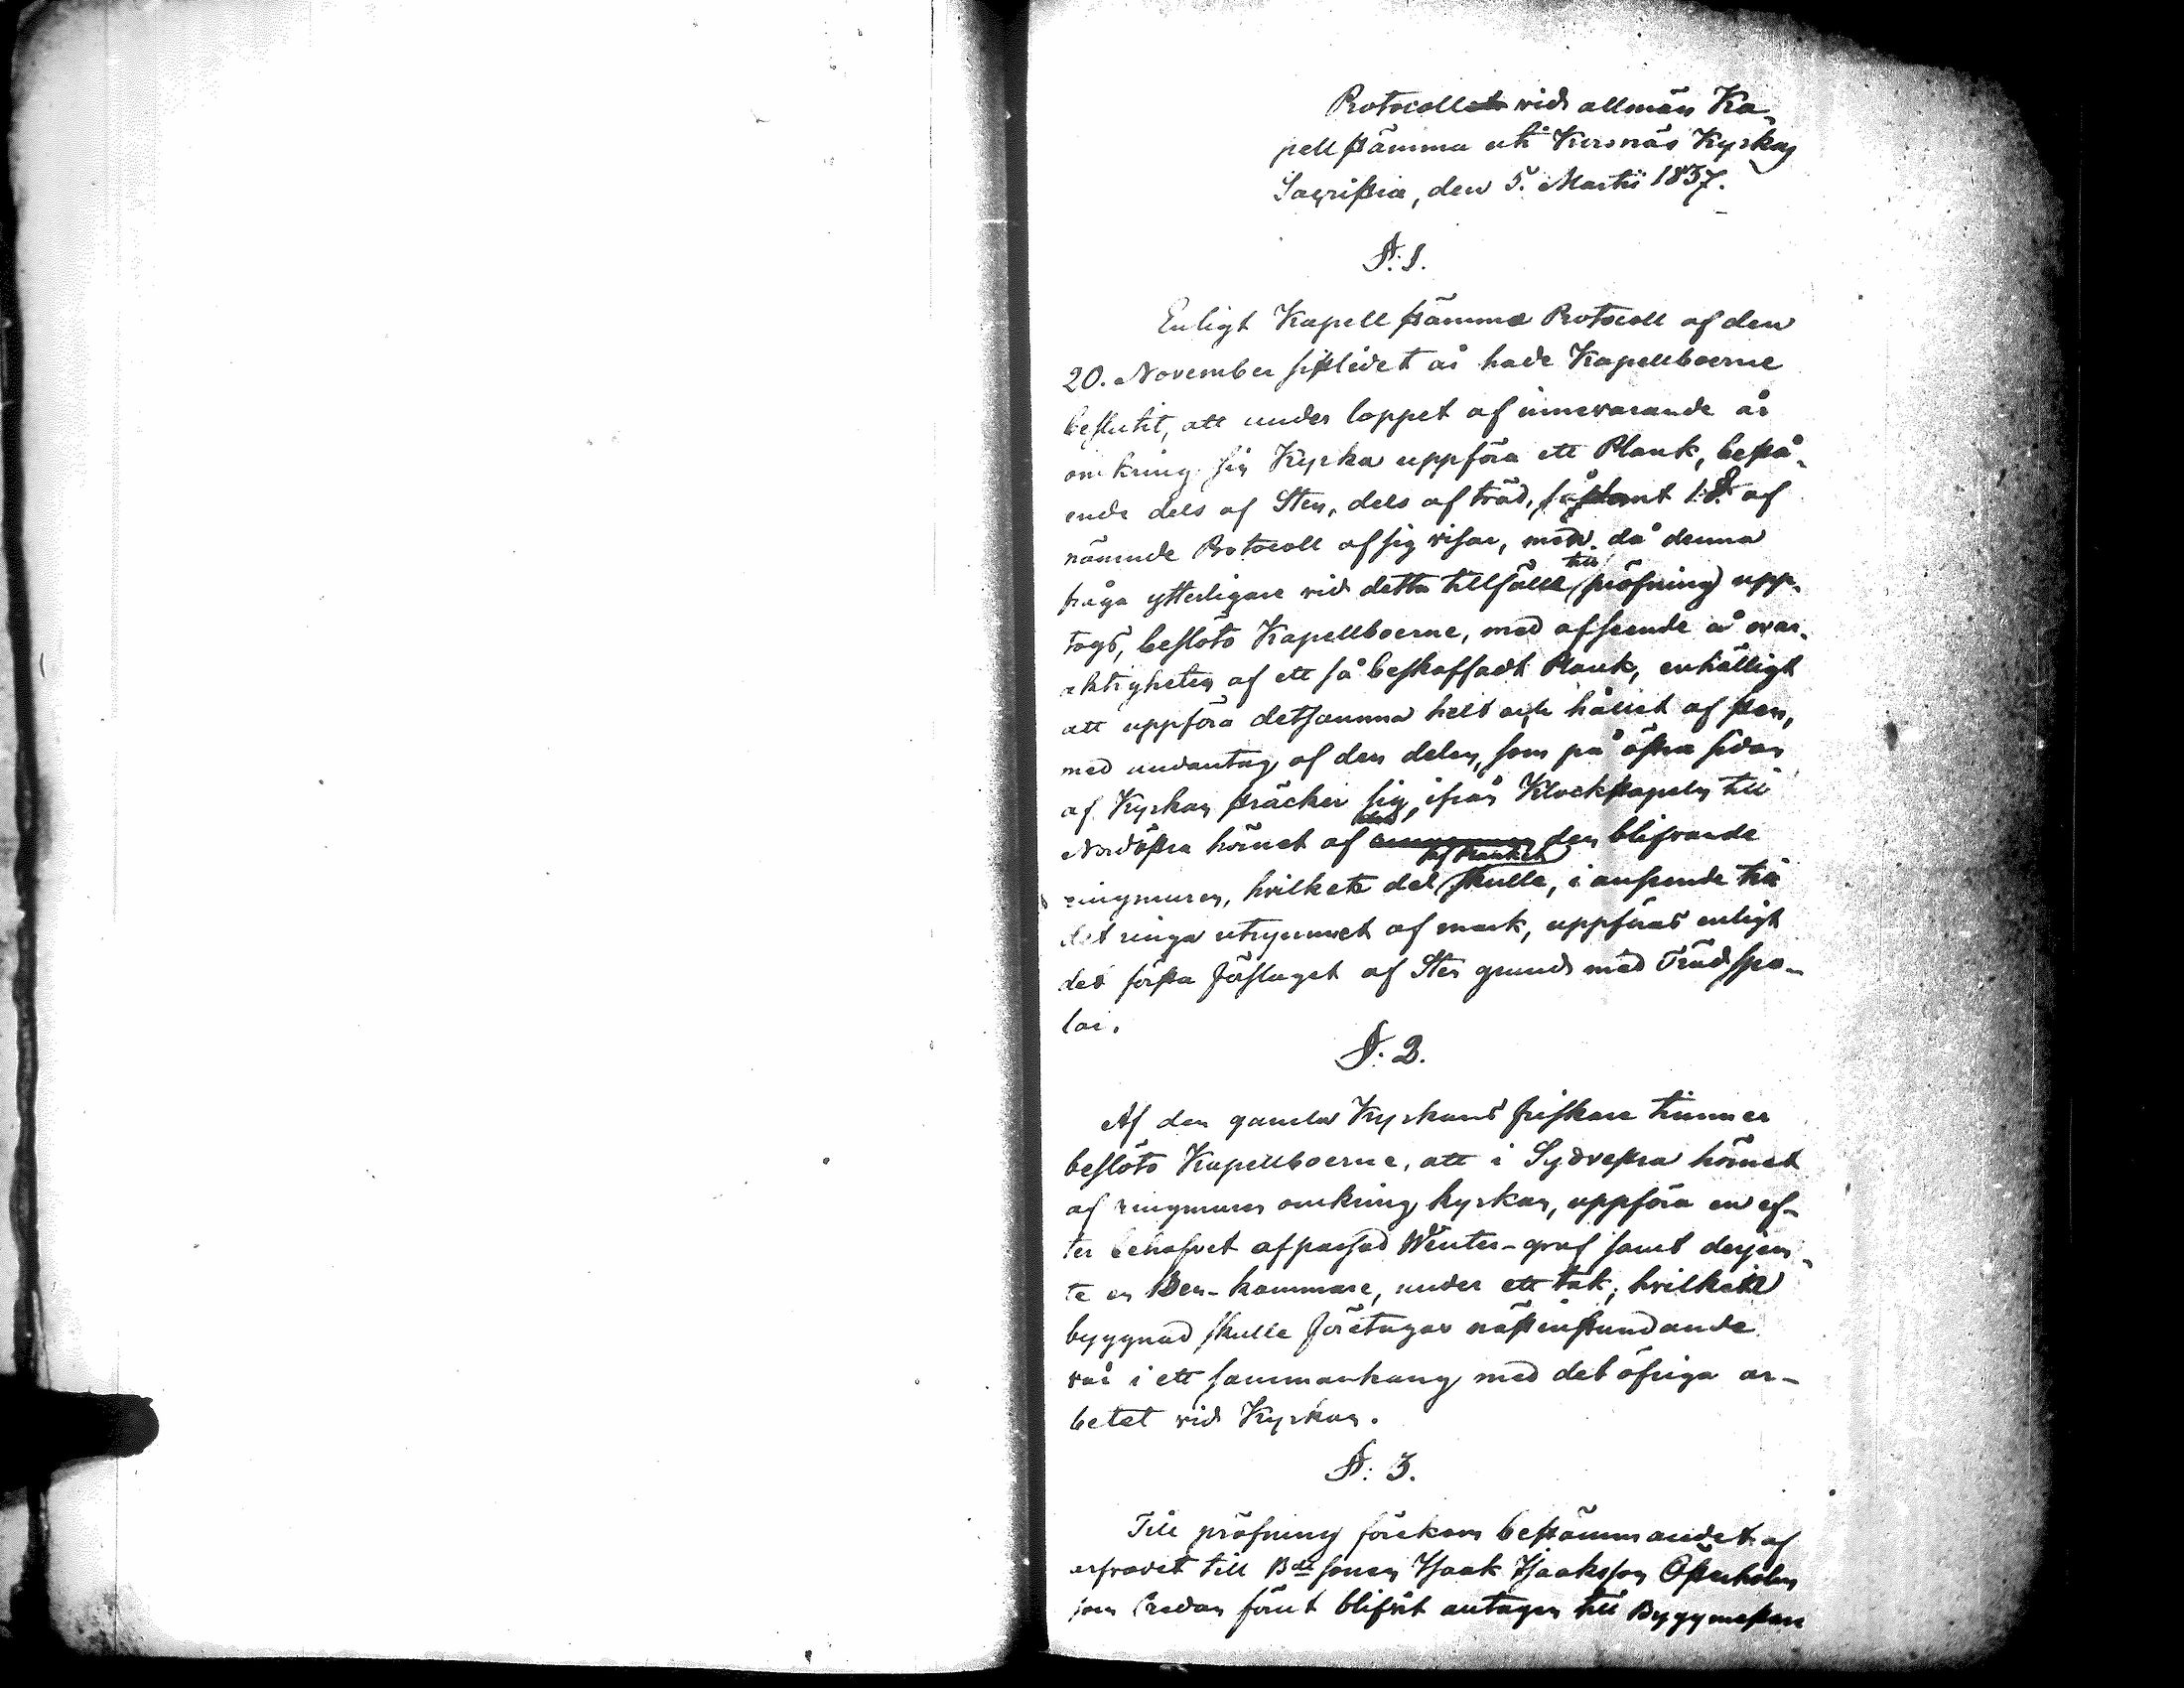 Protocoll vid allmän Ka-
pellstämma uti Kersnäs Kyrkas
Sacristia, den 5. Martii 1837.
§. 1.
Enligt Kapellstämma Protocoll af den
20. November sistledet år hade Kapellboerne
beslutit, att under loppet af innevarande år
omkring sin Kyrka uppföra ett Plank, bestå-
ende dels af Sten, dels af träd, 1. §. af
nämnde Protocoll af sig visar, men då denna
fråga ytterligare vid detta tillfälle till pröfning upp-
togs, beslöto Kapellboerne, med afseende å ovar-
aktigheten af ett så beskaffadt Plank, enhälligt
att uppföra detsamma helt och hållet af sten,
med undantag af den delen, som på östra sidan
af Kyrkan sträcker sig, ifrån Klockstapeln till
Nordöstra hörnet af den blifvande
ringmuren, hvilken del af Planket skulle, i anseende till
det ringa utrymmet af mark, uppföras enligt
det första förslaget af Sten grund med Trädspo-
lar.
§. 2.
Af den gamla Kyrkans friskare timmer
beslöto Kapellboerne, att i Sydvestra hörnet
af ringmuren omkring kyrkan, uppföra en ef-
ter behofvet afpassad Winter-graf samt derjem-
te en Ben-kammare, under ett tak; hvilken
byggnad skulle företagas nästinstundande
vår i ett sammanhang med det öfriga ar-
betet vid Kyrkan.
§. 3.
Till pröfning förekom bestämmandet af
arfvodet till Bde sonen Isaak Isaksson Österholm
som redan förut blifvit antagen till Byggmästare